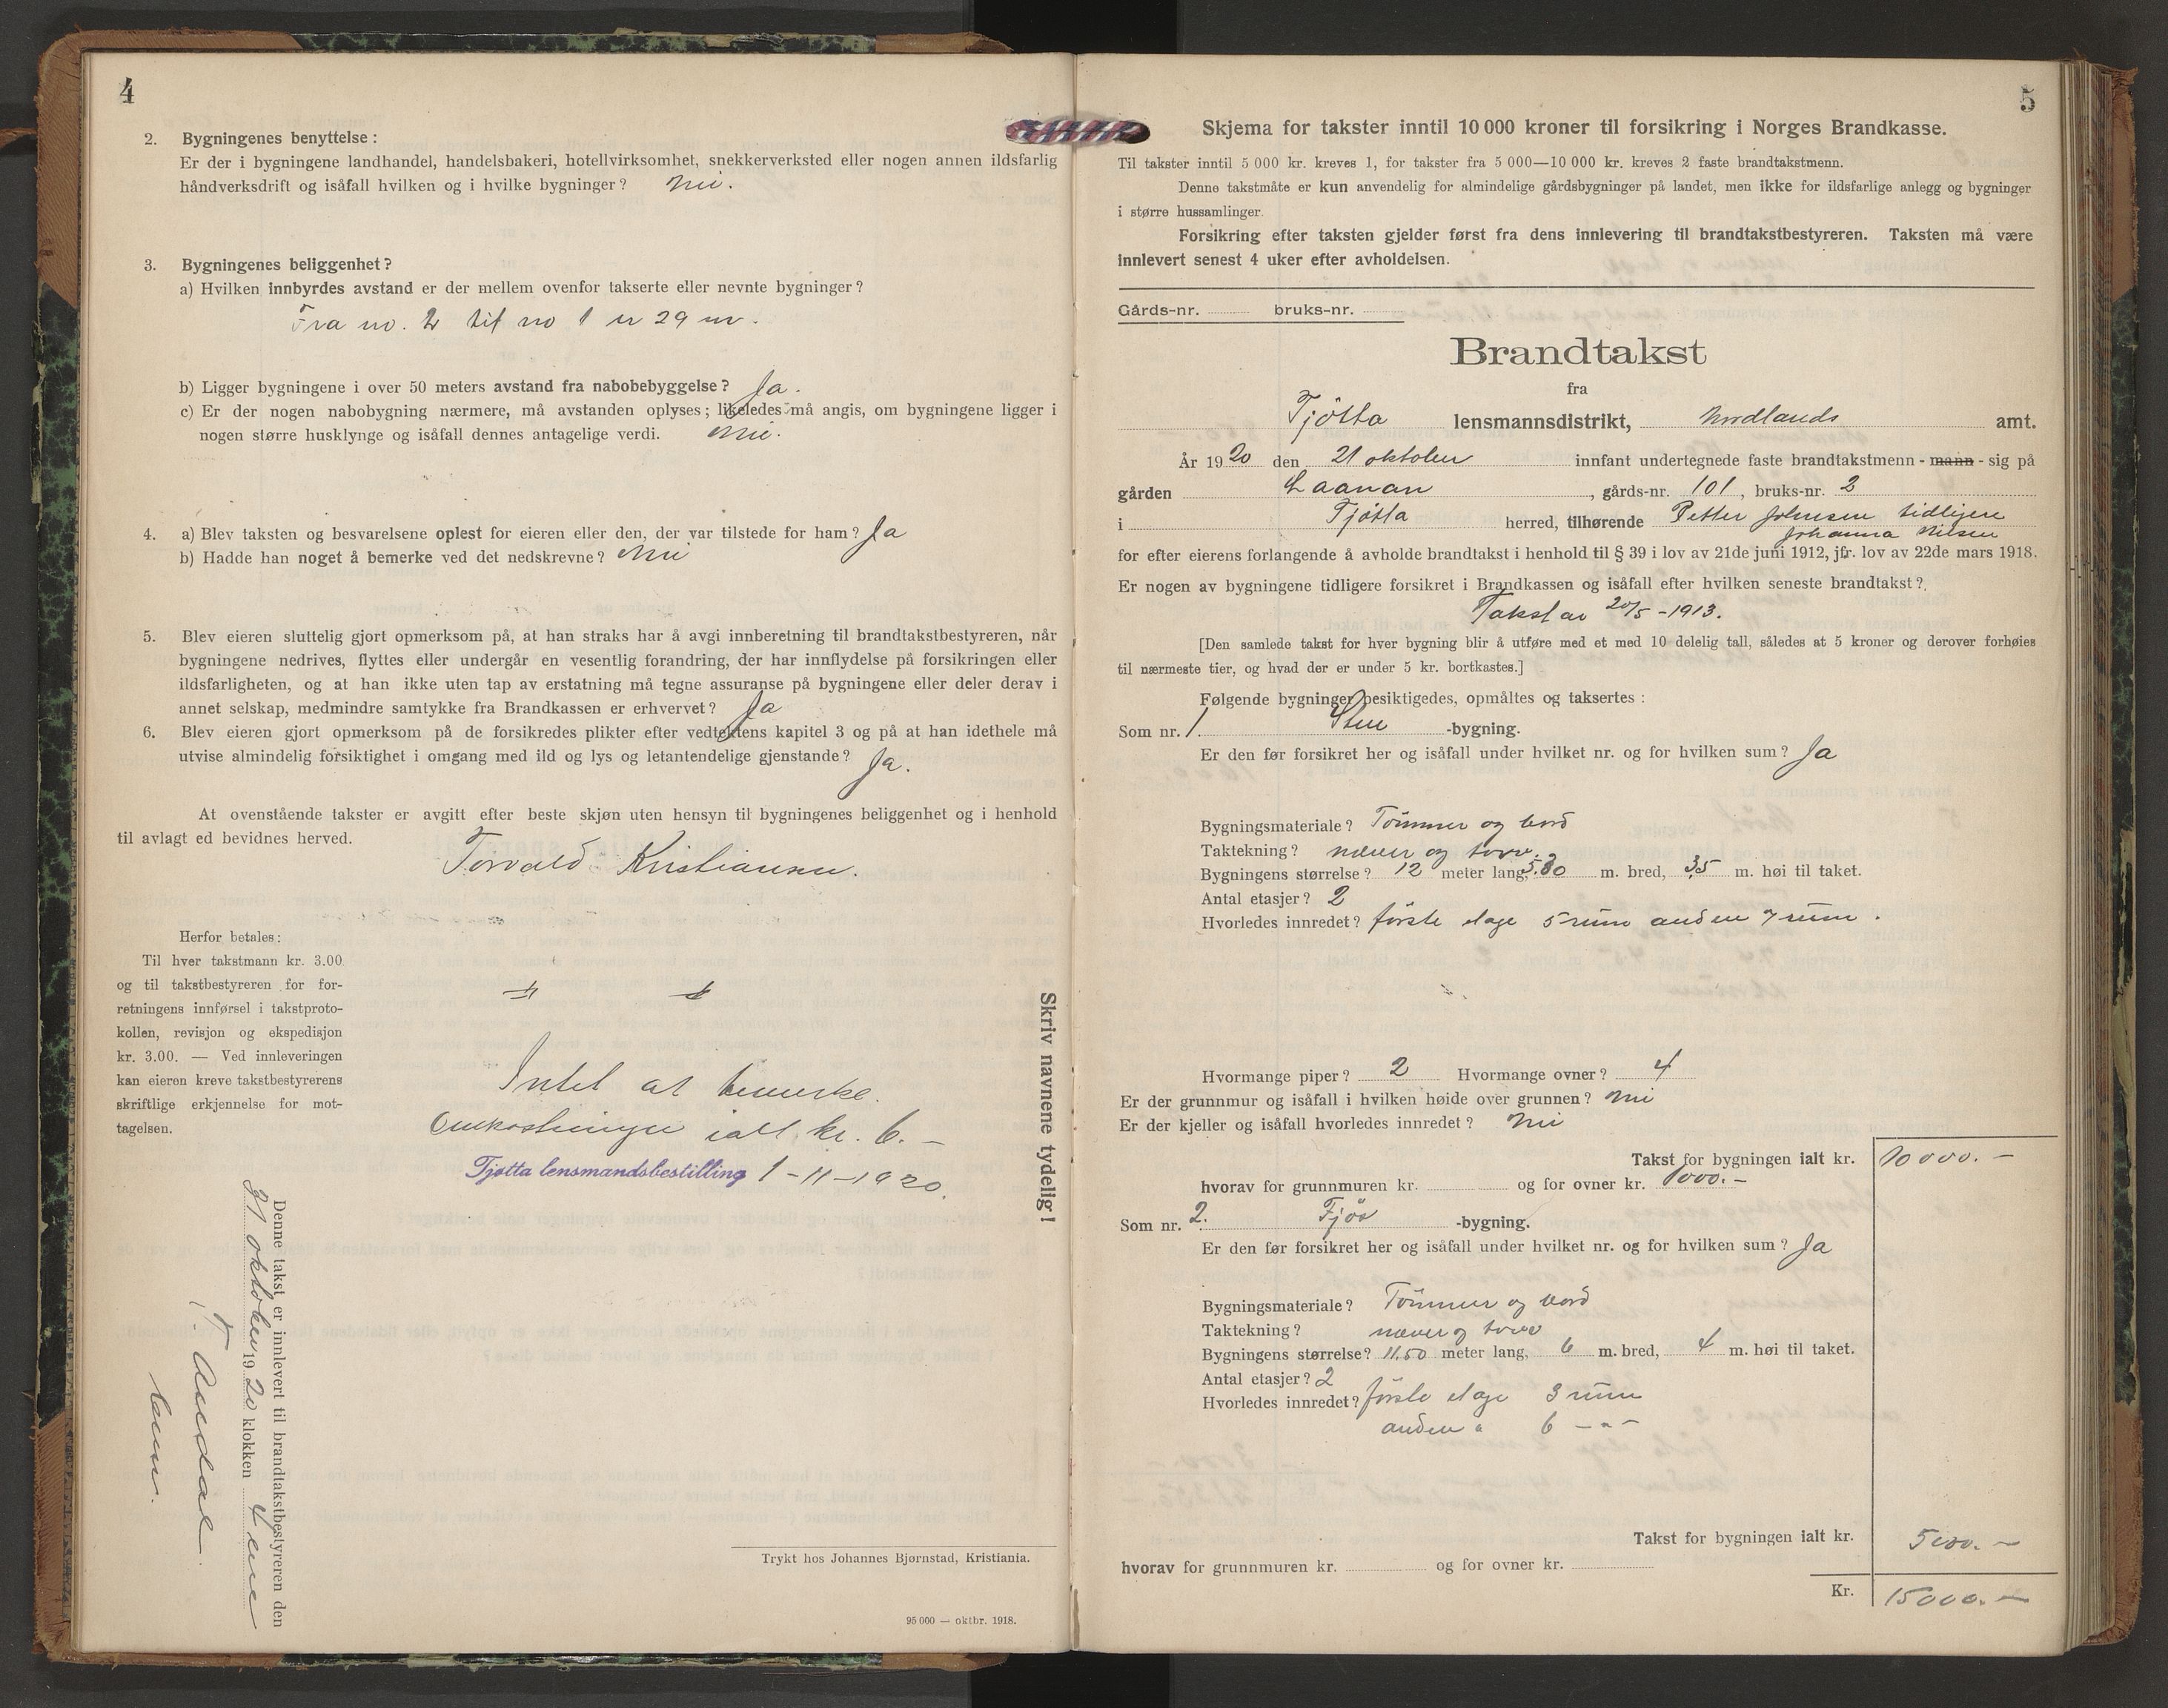 4
2. Bygningenes benyttelse :
Er der i bygningene landhandel, handelsbakeri, hotellvirksomhet, snekkerverksted eller nogen annen ildsfarlig
håndverksdrift og isåfall hvilken og i hvilke bygninger? Nei.
3. Bygningenes beliggenhet?
a) Hvilken innbyrdes avstand er der mellem ovenfor takserte eller nevnte bygninger?
Fra no. 2 til no 1 er 29 m.
b) Ligger bygningene i over 50 meters avstand fra nabobebyggelse? Ja.
c) Er der nogen nabobygning nærmere, må avstanden oplyses; likeledes må angis, om bygningene ligger i
nogen større husklynge og isåfall dennes antagelige verdi. Nei.
4. a) Blev taksten og besvarelsene oplest for eieren eller den, der var tilstede for ham? Ja
b) Hadde han noget å bemerke ved det nedskrevne? Nei
5. Blev eieren sluttelig gjort opmerksom på, at han straks har å avgi innberetning til brandtakstbestyreren, når
bygningene nedrives, flyttes eller undergår en vesentlig forandring, der har innflydelse på forsikringen eller
ildsfarligheten, og at han ikke uten tap av erstatning må tegne assuranse på bygningene eller deler derav i
annet selskap, medmindre samtykke fra Brandkassen er erhvervet? Ja
6. Blev eieren gjort opmerksom på de forsikredes plikter efter vedtektens kapitel 3 og på at han idethele må
utvise almindelig forsiktighet i omgang med ild og lys og letantendelige gjenstande? Ja.
At ovenstående takster er avgitt efter beste skjøn uten hensyn til bygningenes beliggenhet og i henhold
til avlagt ed bevidnes herved.
Torvald Kristiansen.
Herfor betales :
Til hver takstmann kr. 3.00
og til takstbestyreren for for-
retningens innførsel i takstproto-
kollen, revisjon og ekspedisjon
kr. 3.00. — Ved innleveringen
kan eieren kreve takstbestyrerens
skriftlige erkjennelse for mot-
tagelsen.
Intet at bemerke.
Omkostninger ialt kr. 6. –
Tjøtta lensmandsbestilling 1–11–1920.
Skriv navnene tydelig!
Denne takst er innlevert til brandtakstbestyreren den
31 oktober 1920 klokken 4 em
Aursdal
lensm.
Trykt hos Johannes Bjørnstad, Kristiania.
95 000 — oktbr. 1918.
5
Skjema for takster inntil 10 000 kroner til forsikring i Norges Brandkasse.
Til takster inntil 5 000 kr. kreves 1, for takster fra 5 000—10 000 kr. kreves 2 faste brandtakstmenn.
Denne takstmåte er kun anvendelig for almindelige gårdsbygninger på landet, men ikke for ildsfarlige anlegg og bygninger
i større hussamlinger.
Forsikring efter taksten gjelder først fra dens innlevering til brandtakstbestyreren. Taksten må være
innlevert senest 4 uker efter avholdelsen.
Gårds-nr. bruks-nr.
Brandtakst
fra
Tjøtta lensmannsdistrikt, Nordlands amt.
År 1920 den 21 oktober innfant undertegnede faste brandtakstmenn - mann - sig på
gården Laanan, gårds-nr. 101, bruks-nr. 2
i Tjøtta herred, tilhørende Petter Johnsen tidligere
Johanna Nilsen
for efter eierens forlangende å avholde brandtakst i henhold til § 39 i lov av 21de juni 1912, jfr. lov av 22de mars 1918.
Er nogen av bygningene tidligere forsikret i Brandkassen og isåfall efter hvilken seneste brandtakst?
Takst av 20/5 – 1913.
[Den samlede takst for hver bygning blir å utføre med et med 10 delelig tall, således at 5 kroner og derover forhøies
til nærmeste tier, og hvad der er under 5 kr. bortkastes.]
Følgende bygninger besiktigedes, opmåltes og taksertes :
Som nr. 1 Stue -bygning.
Er den før forsikret her og isåfall under hvilket nr. og for hvilken sum? Ja
Bygningsmateriale? Tømmer og bord
Taktekning? næver og torv.
Bygningens størrelse? 12 meter lang, 5.30 m. bred, 3,5 m. høi til taket.
Antal etasjer? 2
Hvorledes innredet? første etage 5 rum anden 7 rum.
Hvormange piper? 2 Hvormange ovner? 4
Er der grunnmur og isåfall i hvilken høide over grunnen? Nei
Er der kjeller og isåfall hvorledes innredet? Nei
Takst for bygningen ialt kr. 10000. –
hvorav for grunnmuren kr. og for ovner kr. 1000. –
Som nr. 2. Fjøs -bygning.
Er den før forsikret her og isåfall under hvilket nr. og for hvilken sum? Ja
Bygningsmateriale? Tømmer og bord
Taktekning? næver og torv
Bygningens størrelse? 11.50 meter lang, 6 m. bred, 4 m. høi til taket.
Antal etasjer? 2
Hvorledes innredet? første etage 3 rum
anden " 6 – " –
Takst for bygningen ialt kr. 5000. –
hvorav for grunnmuren kr. og for ovner kr.
Kr. 15000. –